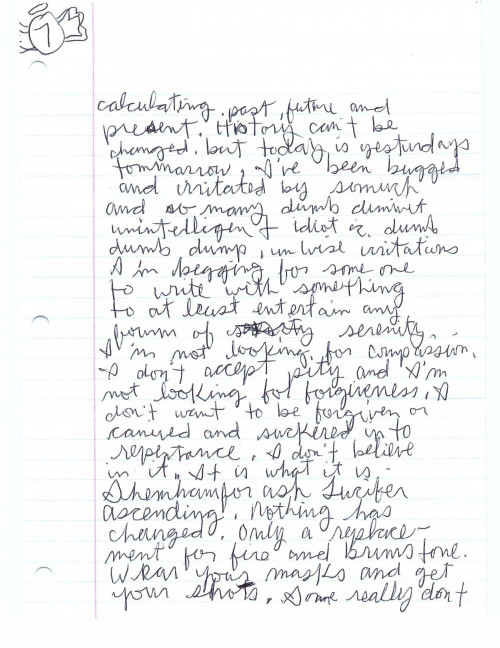 7
calculating, past, future and
present. History can't be
changed. but today is yesturdays
tommarrow, I've been bugged
and irritated by somuch
and so many dumb dimwit
unintelligent idiotic, dumb
dumb dump, unwise irritations
I'm begging for some one
to write with something
to at least entertain any
forum of serenity.
I'm not looking for compassion.
I don't accept pity and I'm
not looking for forgiveness, I
don't want to be forgiven or
and suckered into
repentance. I don't believe
in it. It is what it is -
Shemhamforash Lucifer
ascending. Nothing has
changed. Only a replace-
ment for fire and brimstone.
Wear your masks and get
your shots. Some really don't